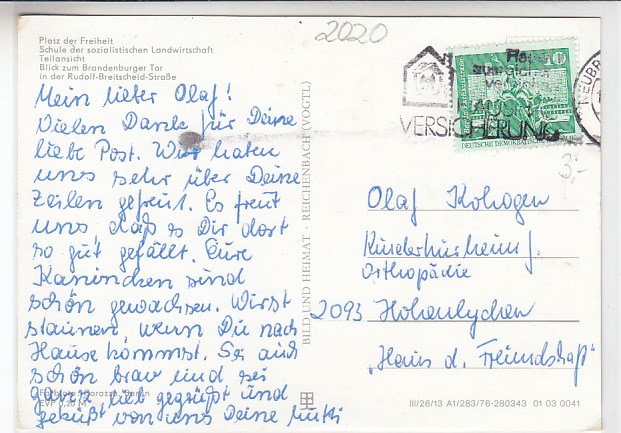 2020
Platz der Freiheit
Schule der sozialistischen Landwirtschaft
Teilansicht
Blick zum Brandenburger Tor
in der Rudolf-Breitscheid-Straße
Mein lieber Olaf!
Vielen Dank für Deine
liebe Post. Wir haben
uns sehr über Deine
Zeilen gefreut. Es freut
uns, daß es Dir dort
so gut gefällt. Eure
Kaninchen sind
schön gewachsen. Wirst
staunen, wenn Du nach
Hause kommst. Sei auch
schön brav und sei
ganz lieb gegrüßt und
geküßt von uns Deine Mutti
Berlin
EVP 0,20 M
BILD UND HEIMAT · REICHENBACH (VOGTL)
VERSICHERUNG
10
DEUTSCHE DEMOKRATISCHE
NEUBR
3,-
Olaf
Kinderkurheim f.
Orthopädie
2093 Hohenlychen
„Haus d. Freundschaft"
III/26/13 A1/283/76-280343 01 03 0041